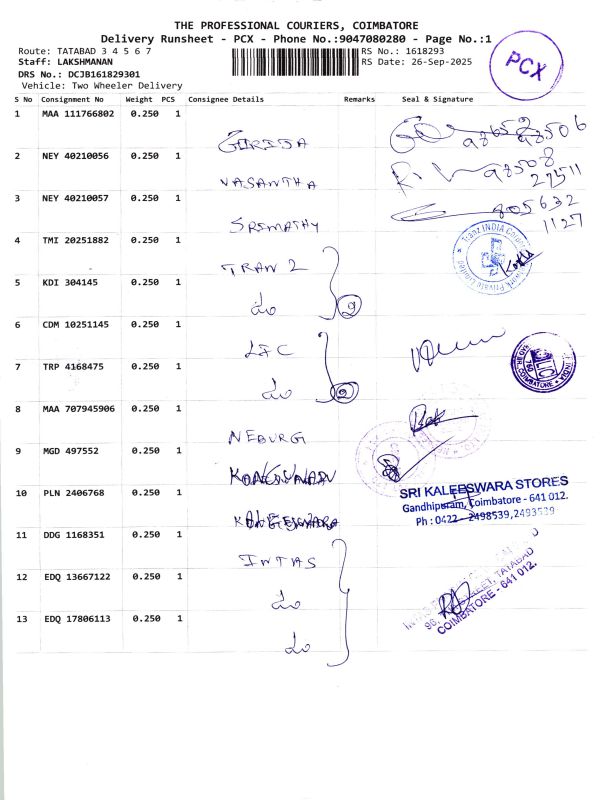 THE PROFESSIONAL COURIERS, COIMBATORE
Delivery Runsheet - PCX - Phone No.:9047080280 - Page No.:1
Route: TATABAD 3 4 5 6 7
RS No.: 1618293
Staff: LAKSHMANAN
RS Date: 26-Sep-2025
DRS No.: DCJB161829301
Vehicle: Two Wheeler Delivery
PCX
S No Consignment No Weight PCS Consignee Details Remarks Seal & Signature
1 MAA 111766802 0.250 1
GIRIJA
2 NEY 40210056 0.250 1
VASANTHA
3 NEY 40210057 0.250 1
SRIMATHY
1127
4 TMI 20251882 0.250 1
TRAN 2
5 KDI 304145 0.250 1
do 2
6 CDM 10251145 0.250 1
LIC
7 TRP 4168475 0.250 1
do 2
8 MAA 707945906 0.250 1
9 MGD 497552 0.250 1
10 PLN 2406768 0.250 1
SRI KALEESWARA STORES
Gandhipuram, Coimbatore - 641 012.
Ph : 0422 - 2498539, 2493539
11 DDG 1168351 0.250 1
INTAS
12 EDQ 13667122 0.250 1
do
13 EDQ 17806113 0.250 1
do
COIMBATORE - 641 012.